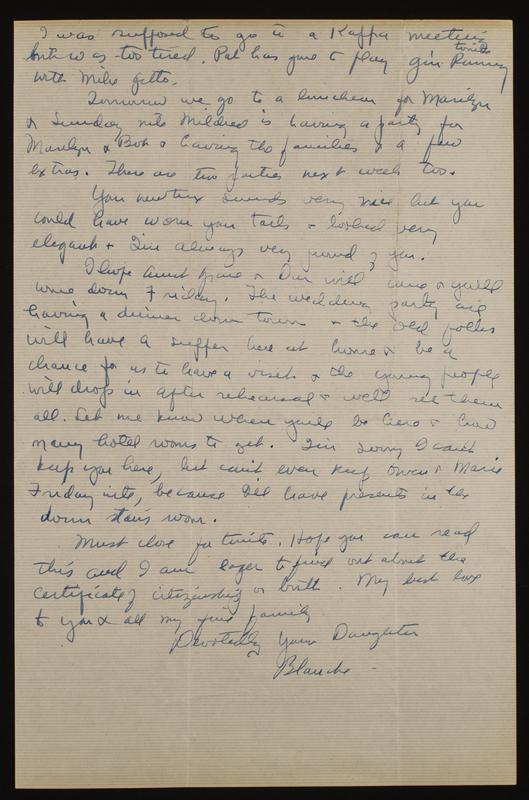 I was supposed to go to a Kappa meeting
tonite
but was too tired. Pat has gone to play gin Rummy
with Mike
Tomorrow we go to a luncheon for Marilyn
& Sunday nite Mildred is having a party for
Marilyn & Bob & having the families & a few
extras. There are two parties next week too.
Your new tux sounds very nice but you
could have worn your tails & looked very
elegant & I'm always very proud of you.
I hope Aunt & will come & you'll
come down Friday. The wedding party are
having a dinner down town & the old folks
will have a supper here at home & be a
chance for us to have a visit & the young people
will drop in after rehearsal & we'll see them
all. Let me know when you'll be here & how
many hotel rooms to get. I'm sorry I can't
keep you here, but can't even keep Owen & Marie
Friday nite, because I'll have presents in the
down stairs room.
Must close for tonite. Hope you can read
this and I am eager to find out about the
certificate of citizenship or birth. My best love
to you & all my fine family
Devotedly Your Daughter
Blanche -